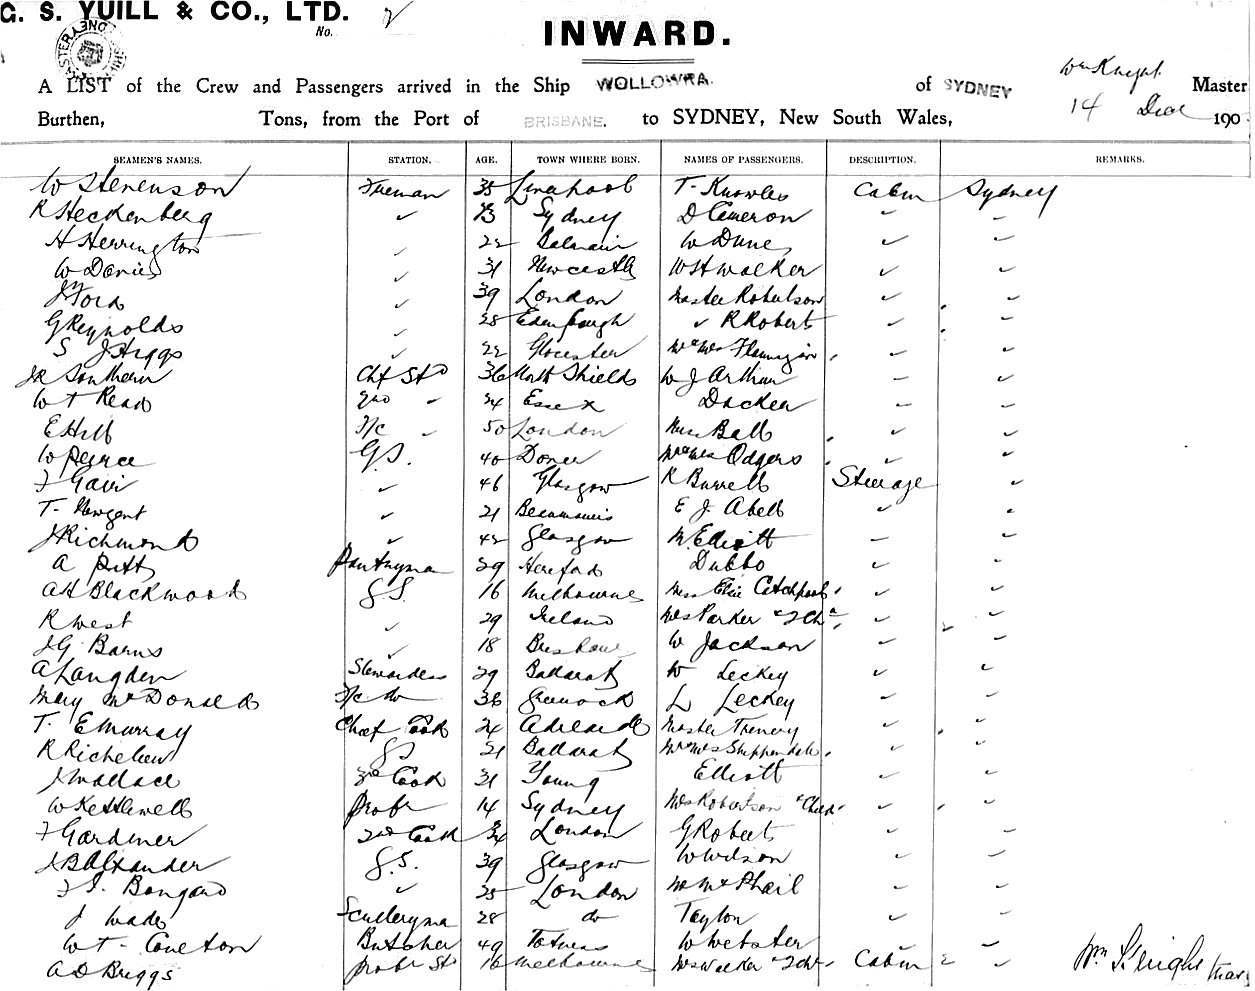 G. S. YUILL & CO., LTD.
No. 2
INWARD.
Wm Knight
A LIST of the Crew and Passengers arrived in the Ship WOLLOWRA. of SYDNEY Master
Burthen, Tons, from the Port of BRISBANE. to SYDNEY, New South Wales, 14 Dec 190
SEAMEN'S NAMES. STATION. AGE. TOWN WHERE BORN. NAMES OF PASSENGERS. DESCRIPTION. REMARKS.
W Stevenson Fireman 35 Liverpool T. Knowles Cabin Sydney
R Heckenberg ✓ Sydney D Cameron
H Herrington ✓ 22 Balmain W Dune
W Davies ✓ 31 Newcastle W H Walker
J Ford ✓ 39 London Master Robertson
G Reynolds ✓ 28 Edenbough ✓ R Roberts
S J Higgs ✓ 22 Glocester Mr & Mrs Flannigan
J R Southern Chf Std 36 North Shields W J Arthur
W T Read 2nd ✓ 24 Essex Dacken
E Hill F/c ✓ 50 London Miss Ball
W Peirce G.S. 40 Dover Mr & Mrs Odgers
J Gair ✓ 46 Glasgow R Burrell Steerage
T. Newgent ✓ 21 Beaumauris E J Abell
J Richmond ✓ 42 Glasgow M Elliott
A Pitt Pantryman 29 Hereford Dubbo
A H Blackwood G.S. 16 Melbourne Miss Elsie Catchpool
R West ✓ 29 Ireland Mrs Parker & 2 Chn
J G Barns ✓ 18 Brisbane W Jackson
A Langden Stewardess 29 Ballarat W Leckey
Mary McDonald F/c do 36 Greenock L Leckey
T. E Murray Chief Cook 24 Adelaide Master Trenery
R Richelieu GS 21 Ballarat Mr & Mrs Shippendale
J Wallace 3rd Cook 31 Young Elliott
W Kettlewell Probr 14 Sydney Mrs Robertson & Child
F Gardiner 2nd Cook 34 London G Roberts
J B Alxander G.S. 39 Glasgow W Wilson
F I. Bongard ✓ 25 London McPhail
J Wades Sculleryman 28 do Taylor
W T. Coulton Butcher 49 Totness W Webster
A D Briggs Probr Std 16 Melbourne Mrs Walker & 2 Chn Cabin
Wm Knight